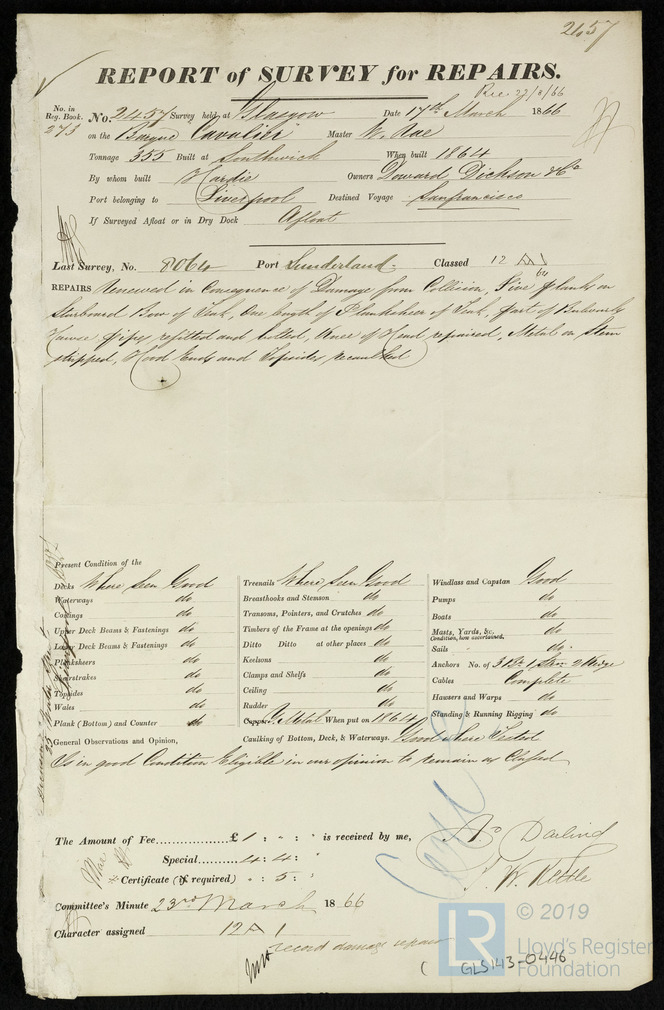 2457
REPORT of SURVEY for REPAIRS.
Rec 22/3/66
No. in Reg. Book. 273
No. 2457 Survey held at Glasgow Date 17th March 1866
on the Barque Cavalier Master W. Rae
Tonnage 355 Built at Southwich When built 1864
By whom built Hardie Owners Doward Dickson & Co
Port belonging to Liverpool Destined Voyage Sanfrancisco
If Surveyed Afloat or in Dry Dock Afloat
Last Survey, No. 8064 Port Sunderland Classed 12 A 1
REPAIRS Renewed in Consequence of Damage from Collision, Five planks on
Starboard Bow of Teak, One length of Plansheer of Teak, part of Bulwarks
Hawse pipes refitted and bolted, Knee of Head repaired, Metal on Stem
stripped, Hood Ends and Topsides recaulked
Present Condition of the
Decks Where Seen Good
Waterways do
Comings do
Upper Deck Beams & Fastenings do
Lower Deck Beams & Fastenings do
Planksheers do
Sheerstrakes do
Topsides do
Wales do
Plank (Bottom) and Counter do
Treenails Where Seen Good
Breasthooks and Stemson do
Transoms, Pointers, and Crutches do
Timbers of the Frame at the openings do
Ditto Ditto at other places do
Keelsons do
Clamps and Shelfs do
Ceiling do
Rudder do
Copper Y. Metal When put on 1864
Caulking of Bottom, Deck, & Waterways. Good where Tested
Windlass and Capstan Good
Pumps do
Boats do
Masts, Yards, &c. do
Condition, how ascertained.
Sails do
Anchors No. of 3 Br. 1 Strm 2 Kedge
Cables Complete
Hawsers and Warps do
Standing & Running Rigging do
General Observations and Opinion,
Is in good Condition Eligible in our opinion to remain as Classed
The Amount of Fee £ 1 : " : " is received by me,
Special 4 : 4 : "
Certificate (if required) " : 5 : "
As Darling
J. W. Kettle
Committee's Minute 23rd March 1866
Character assigned 12 A 1
record damage repairs
GLS143-0446
LR
© 2019
Lloyd's Register
Foundation